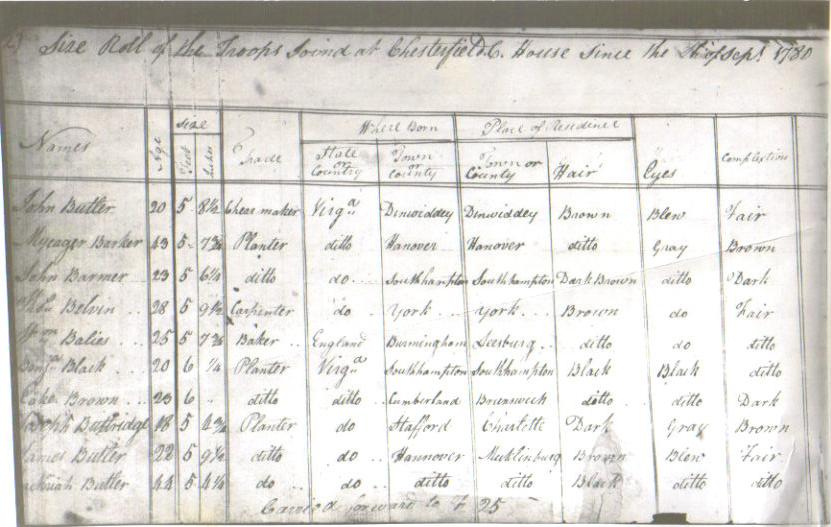 Size Roll of the Troops Joind at Chesterfield C. House Since the of Sept 1780
Size Where Born Place of Residence
Names Age Feet Inches Trade State or Country Town or County Town or County Hair Eyes Complextion
John Butler 20 5 8½ Chear maker Virga Dinwiddey Dinwiddey Brown Blew Fair
Mycager Barker 43 5 7¾ Planter ditto Hanover Hanover ditto Gray Brown
John Barmer 23 5 6¼ ditto do Southhampton Southhampton Dark Brown ditto Dark
Belvin 28 5 9½ Carpenter do York York Brown do Fair
Wm Balies 25 5 7¾ Baker England Burmingham Leesburg ditto do ditto
Benja Black 20 6 ¼ Planter Virga Southhampton Southhampton Black Black ditto
Brown 23 6 ditto ditto Cumberland Brunswick ditto ditto Dark
Buttridge 18 5 4¾ Planter do Stafford Charlotte Dark Gray Brown
James Butler 22 5 9½ ditto do Hannover Mecklinburg Brown Blew Fair
Butler 44 5 4¼ do do ditto ditto Black ditto ditto
Carried forward to F 25